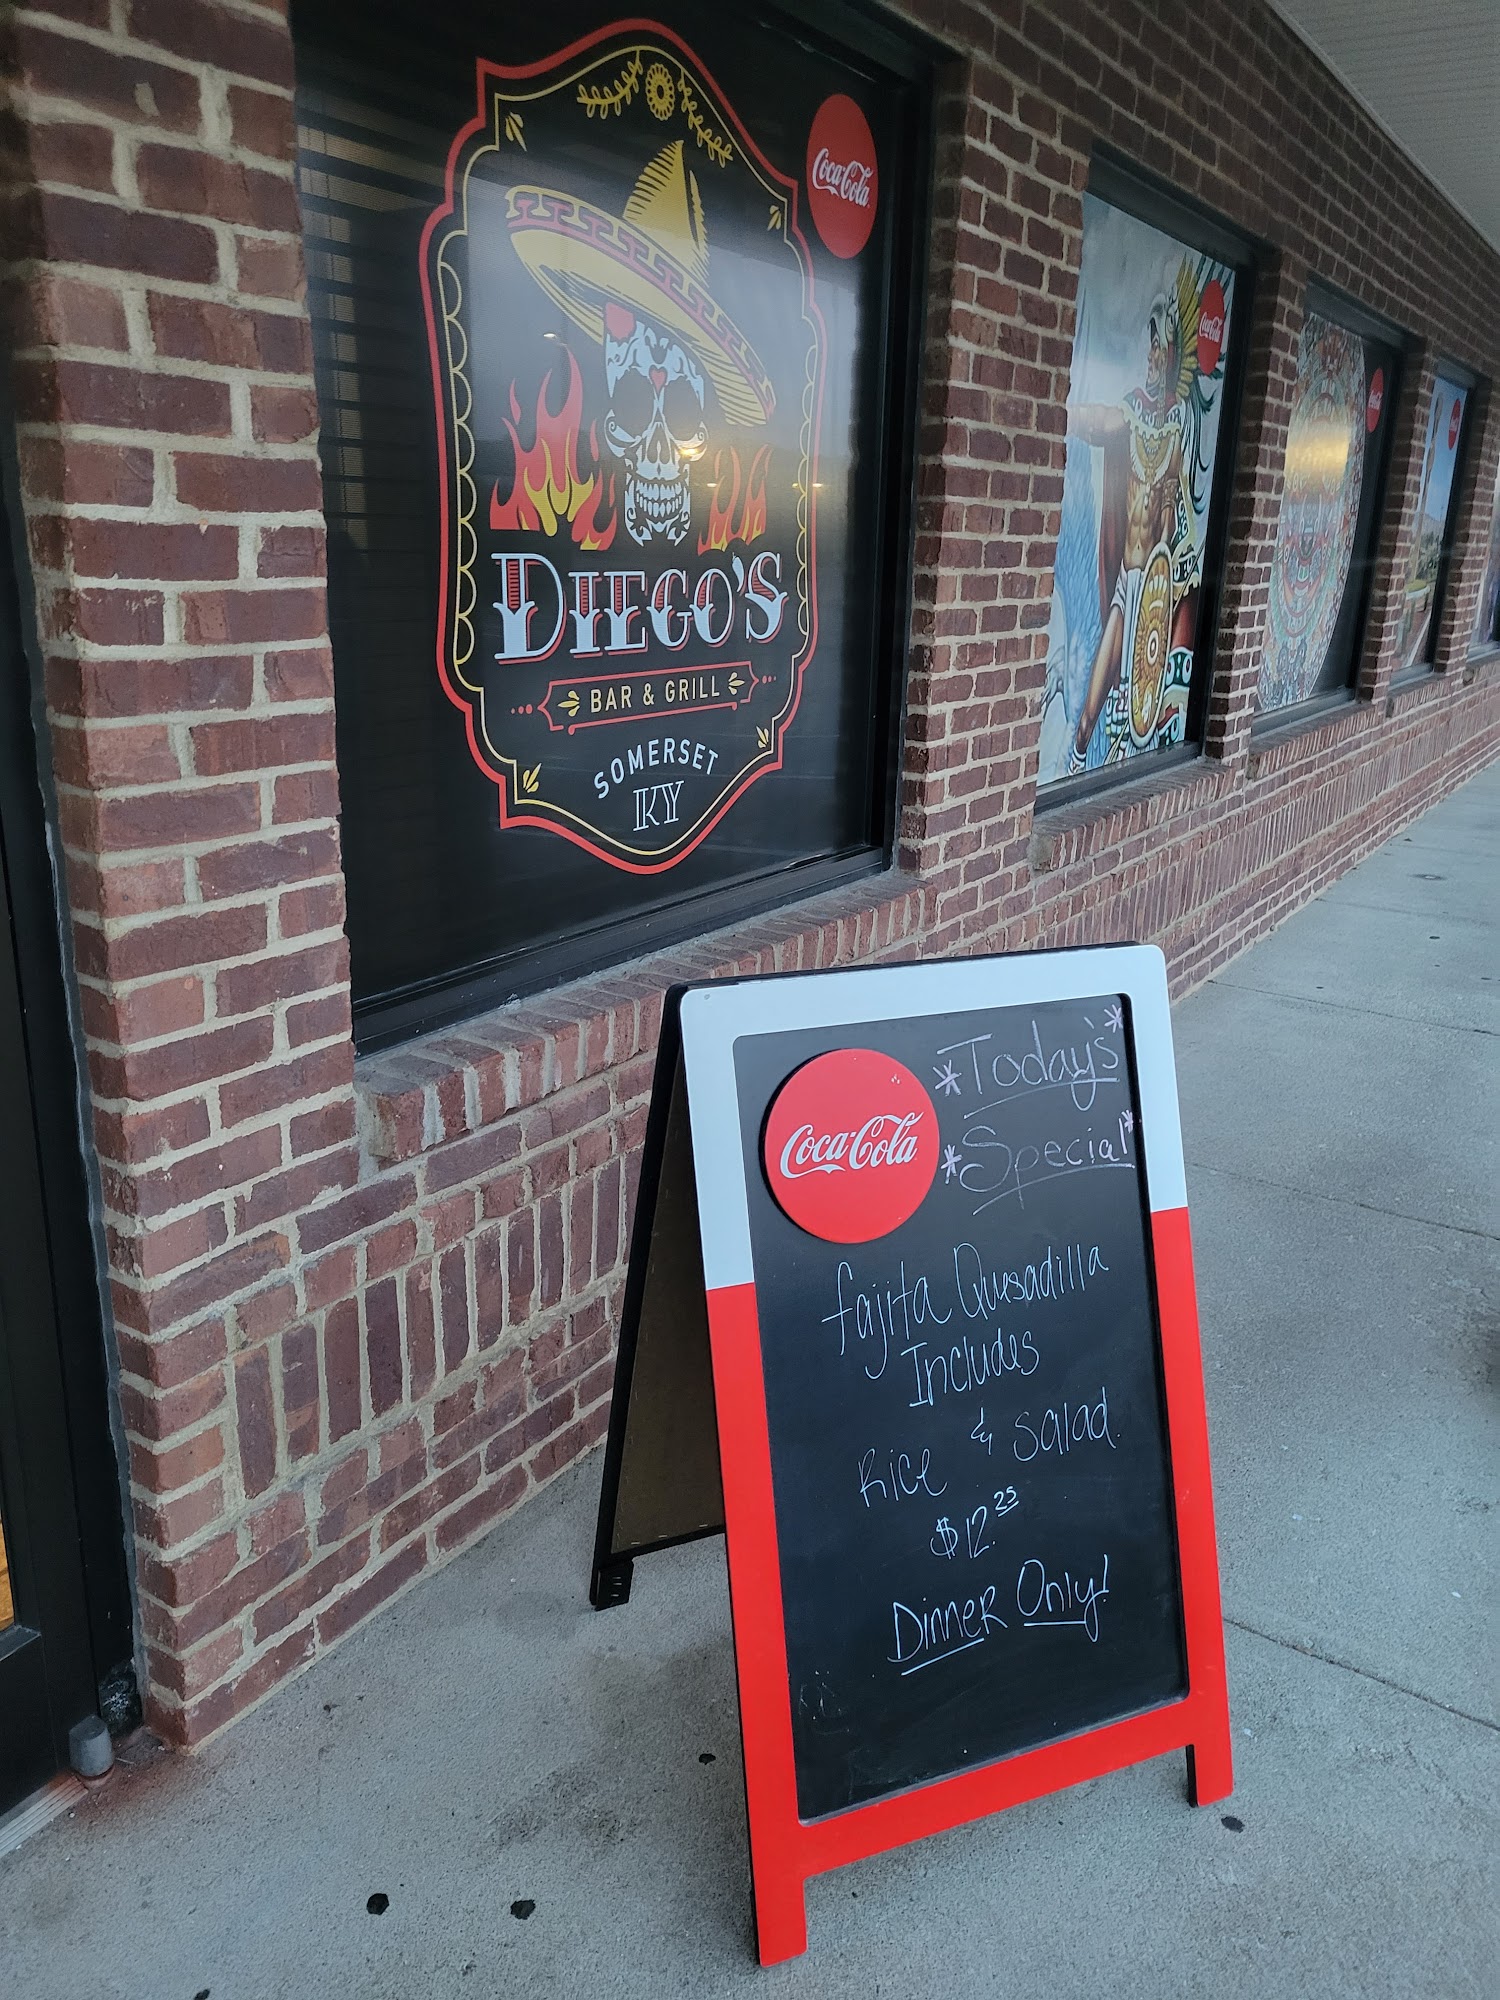 Coca-Cola
DIEGO'S
BAR & GRILL
SOMERSET
KY
Coca-Cola
Coca-Cola
Coca-Cola
Coca-Cola
*Today's*
*Special*
Fajita Quesadilla
Includes
Rice & Salad.
$12.25
Dinner Only!